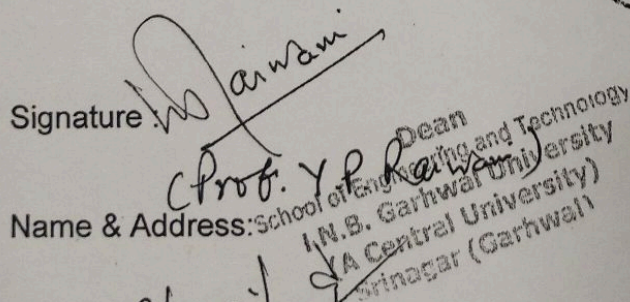 Signature :
Raiwani
(Prof. Y P Raiwani)
Dean
Name & Address:School of Engineering and Technology
H.N.B. Garhwal University
(A Central University)
Srinagar (Garhwal)